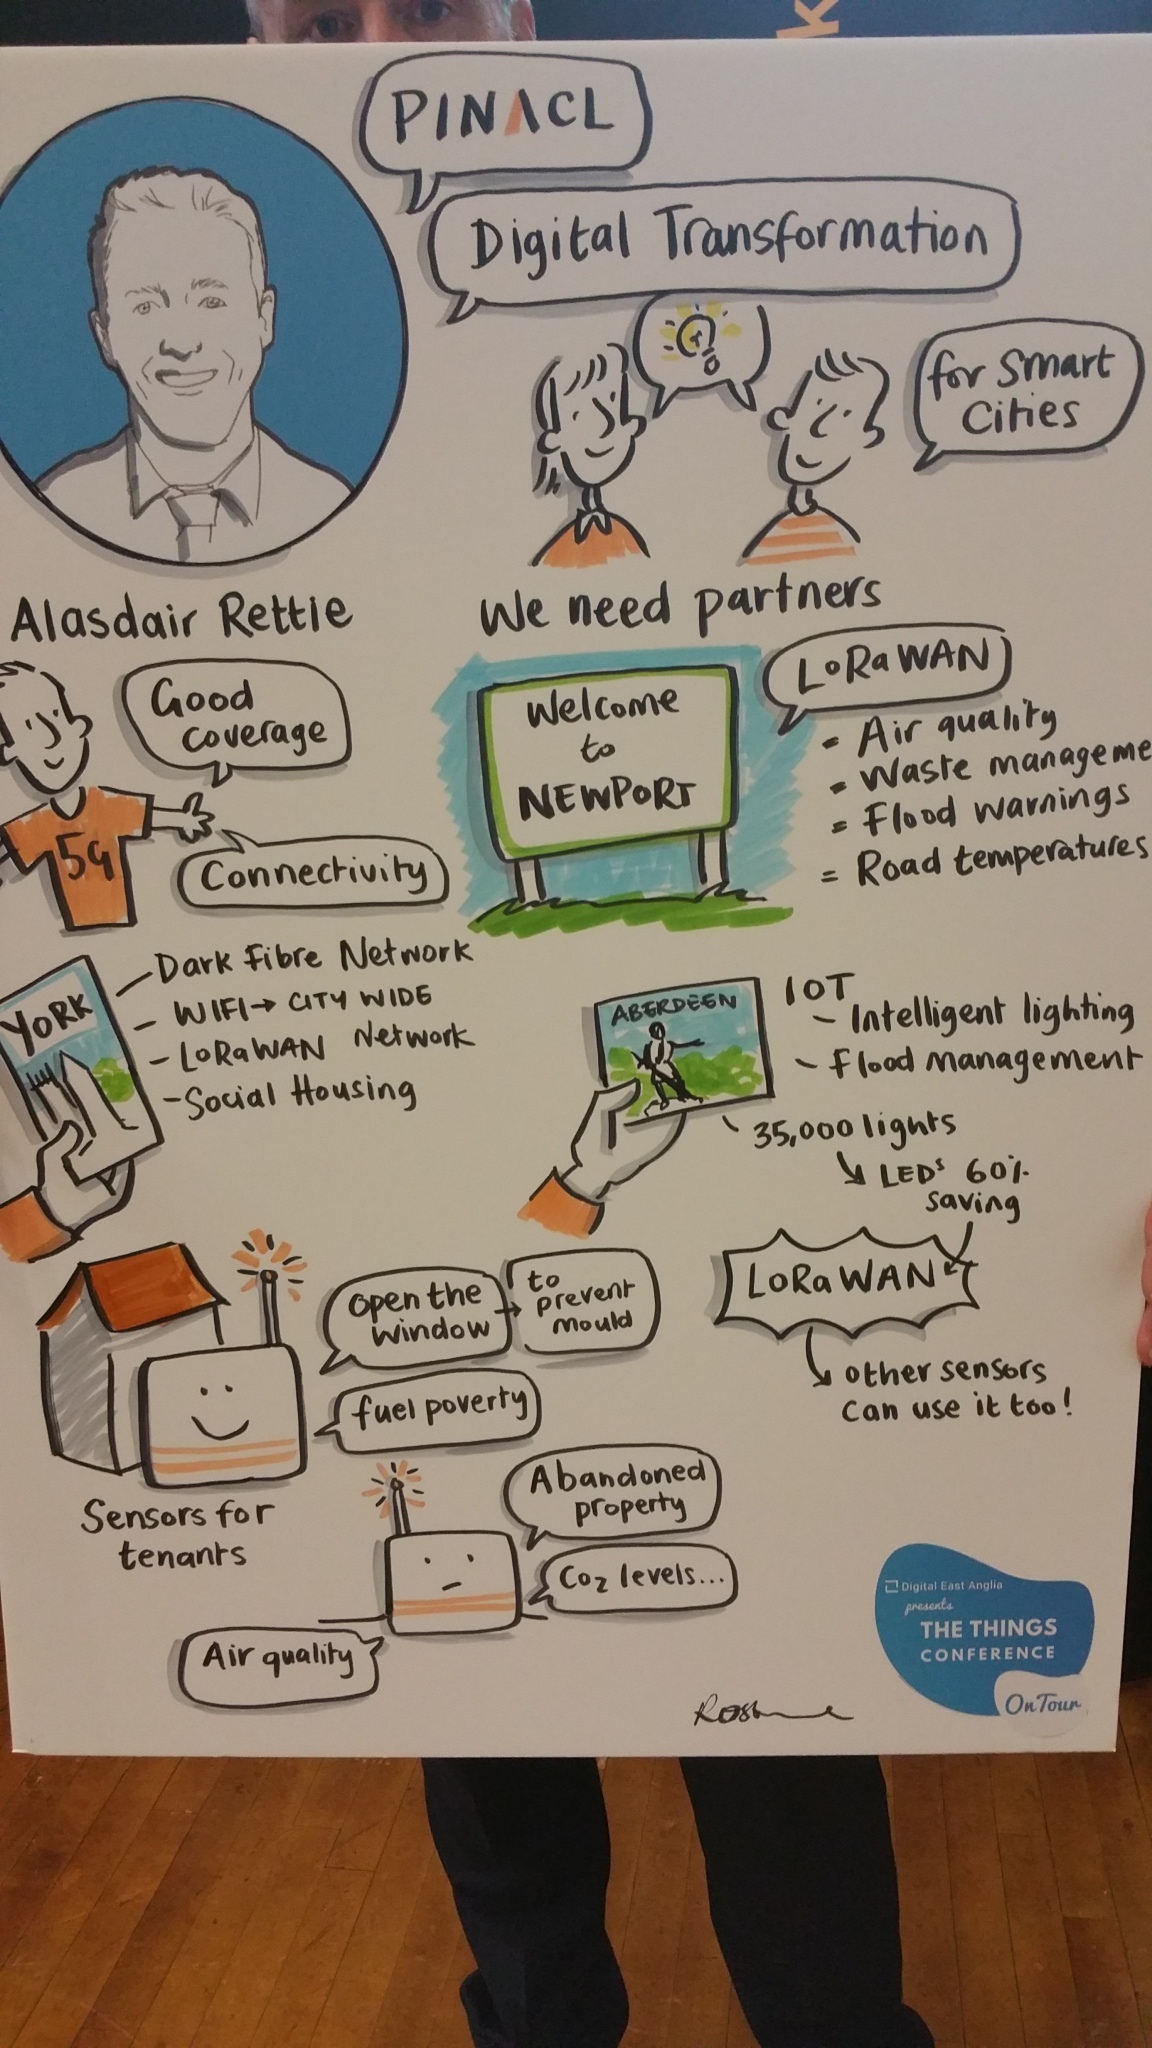 k
PINACL
Digital Transformation
for smart
Cities
Alasdair Rettie
We need partners
Good
coverage
5G
Connectivity
Welcome
to
NEWPORT
LoRaWAN
= Air quality
= Waste manageme
= Flood warnings
= Road temperatures
YORK
- Dark Fibre Network
- WIFI → CITY WIDE
- LoRaWAN Network
- Social Housing
ABERDEEN
IOT
- Intelligent lighting
- Flood management
35,000 lights
LEDs 60%
saving
LoRaWAN
other sensors
can use it too!
open the
window
to
prevent
mould
fuel poverty
Sensors for
tenants
Abandoned
property
Co2 levels...
Air quality
Digital East Anglia
presents
THE THINGS
CONFERENCE
On Tour